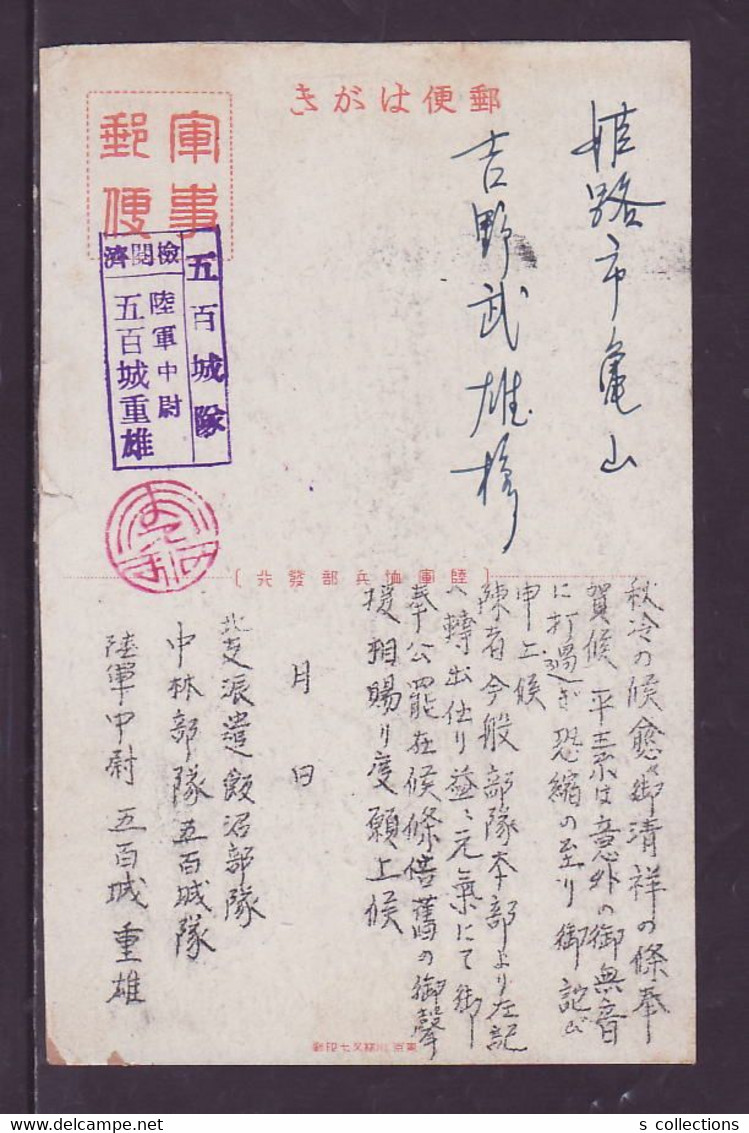 郵便はがき
軍事
郵便
姫路市亀山
吉野武雄様
五百城隊
檢閲濟
陸軍中尉
五百城重雄
陸軍恤兵部發行
秋冷の候愈々御清祥の條奉
賀候 平素は意外の御無音
に打過ぎ恐縮の至り御詫び
申上候
陳者今般部隊本部より左記
へ轉出仕り益々元氣にて御
奉公罷在候條倍舊の御聲
援相賜り度願上候
月 日
北支派遣飯沼部隊
中林部隊五百城隊
陸軍中尉 五百城重雄
s collections